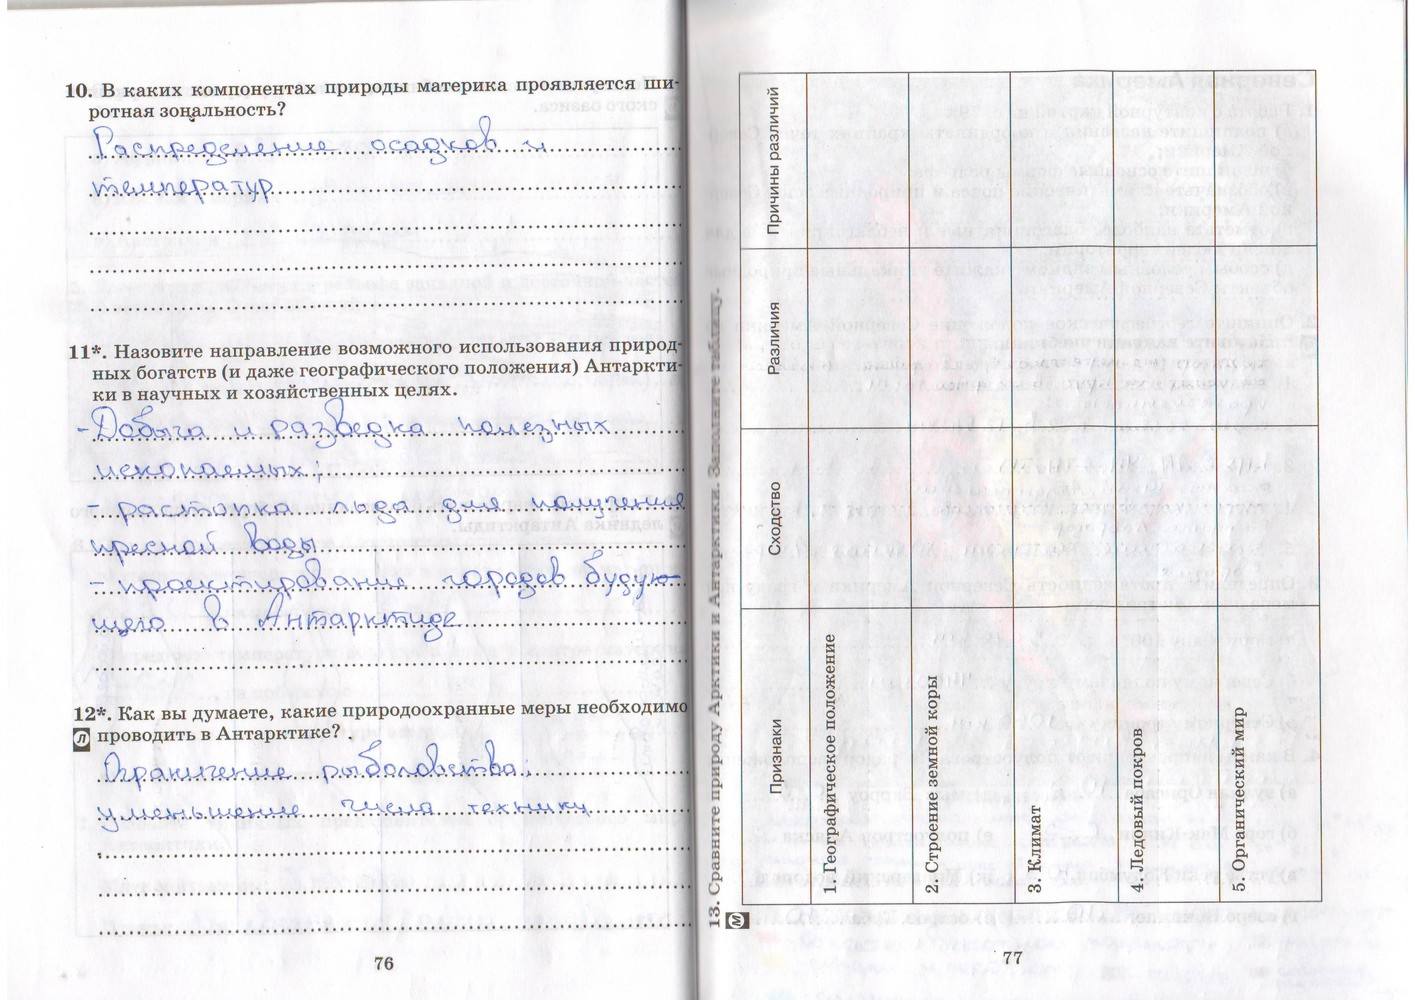 10. В каких компонентах природы материка проявляется ши-
ротная зональность?
Распределение осадков и
температур
11*. Назовите направление возможного использования природ-
ных богатств (и даже географического положения) Антаркти-
ки в научных и хозяйственных целях.
- Добыча и разведка полезных
ископаемых;
- растопка льда для получения
пресной воды
- проектирование городов будую-
щего в Антарктиде
12*. Как вы думаете, какие природоохранные меры необходимо
Л проводить в Антарктике?
Ограничение рыболовства;
уменьшение числа технику
76
М 13. Сравните природу Арктики и Антарктики. Заполните таблицу.
Признаки Сходство Различия Причины различий
1. Географическое положение
2. Строение земной коры
3. Климат
4. Ледовый покров
5. Органический мир
77